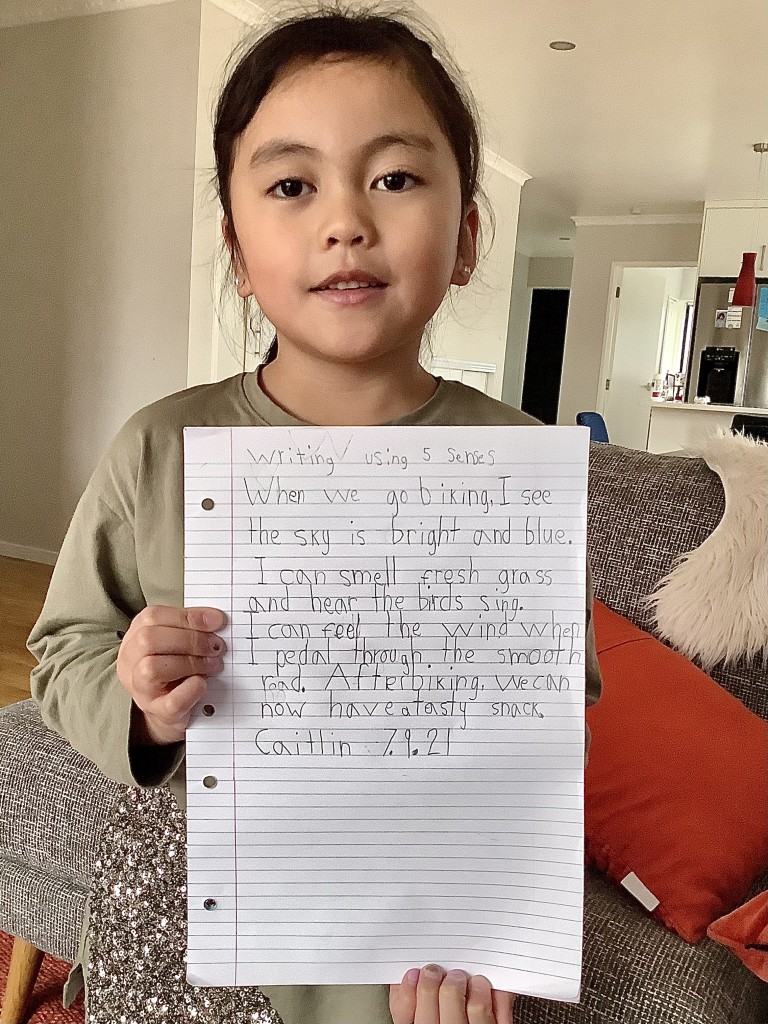 Writing using 5 senses
When we go biking, I see
the sky is bright and blue.
I can smell fresh grass
and hear the birds sing.
I can feel the wind when
I pedal through the smooth
road. After biking, we can
now have a tasty snack.
Caitlin 7.9.21